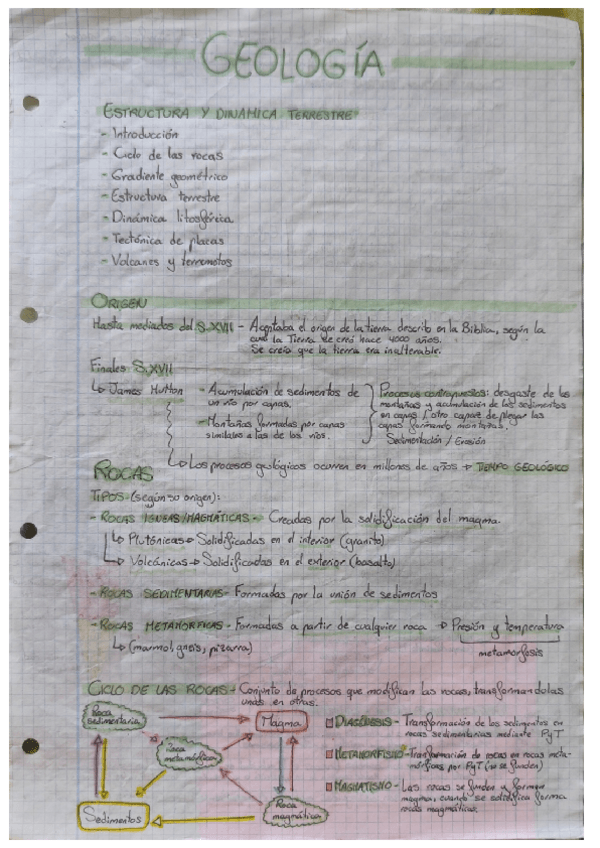 GEOLOGÍA
ESTRUCTURA Y DINAMICA TERRESTRE
- Introducción
- Ciclo de las rocas
- Gradiente geométrico
- Estructura terrestre
- Dinámica litosférica
- Tectónica de placas
- Volcanes y terremotos
ORIGEN
Hasta mediados del S.XVII - Aceptaba el origen de la tierra descrito en la Biblia, según la
cual la Tierra se creó hace 4000 años.
Se creía que la tierra era inalterable.
Finales S.XVII
↳ James Hutton - Acumulación de sedimentos de
un río por capas.
- Montañas formadas por capas
similares a las de los ríos.
Procesos contrapuestos: desgaste de las
montañas y acumulación de los sedimentos
en capas / otro capaz de plegar las
capas formando montañas.
Sedimentación / Erosión
↳ Los procesos geológicos ocurren en millones de años → TIEMPO GEOLÓGICO
ROCAS
TIPOS (según su origen):
- ROCAS IGNEAS/MAGMÁTICAS - Creadas por la solidificación del magma.
↳ Plutónicas → Solidificadas en el interior (granito)
↳ Volcánicas → Solidificadas en el exterior (basalto)
- ROCAS SEDIMENTARIAS - Formadas por la unión de sedimentos
- ROCAS METAMÓRFICAS - Formadas a partir de cualquier roca → Presión y temperatura
↳ (marmol, gneis, pizarra)
metamorfosis
CICLO DE LAS ROCAS - Conjunto de procesos que modifican las rocas, transformandolas
unas en otras.
Roca
sedimentaria
Magma
Roca
metamórfica
Sedimentos
Roca
magmática
DIAGÉNESIS - Transformación de los sedimentos en
rocas sedimentarias mediente PyT
METAMORFISMO - Transformación de rocas en rocas meta-
mórficas por PyT (no se funden)
MAGMATISMO - Las rocas se funden y forman
magma, cuando se solidifica forma
rocas magmáticas.